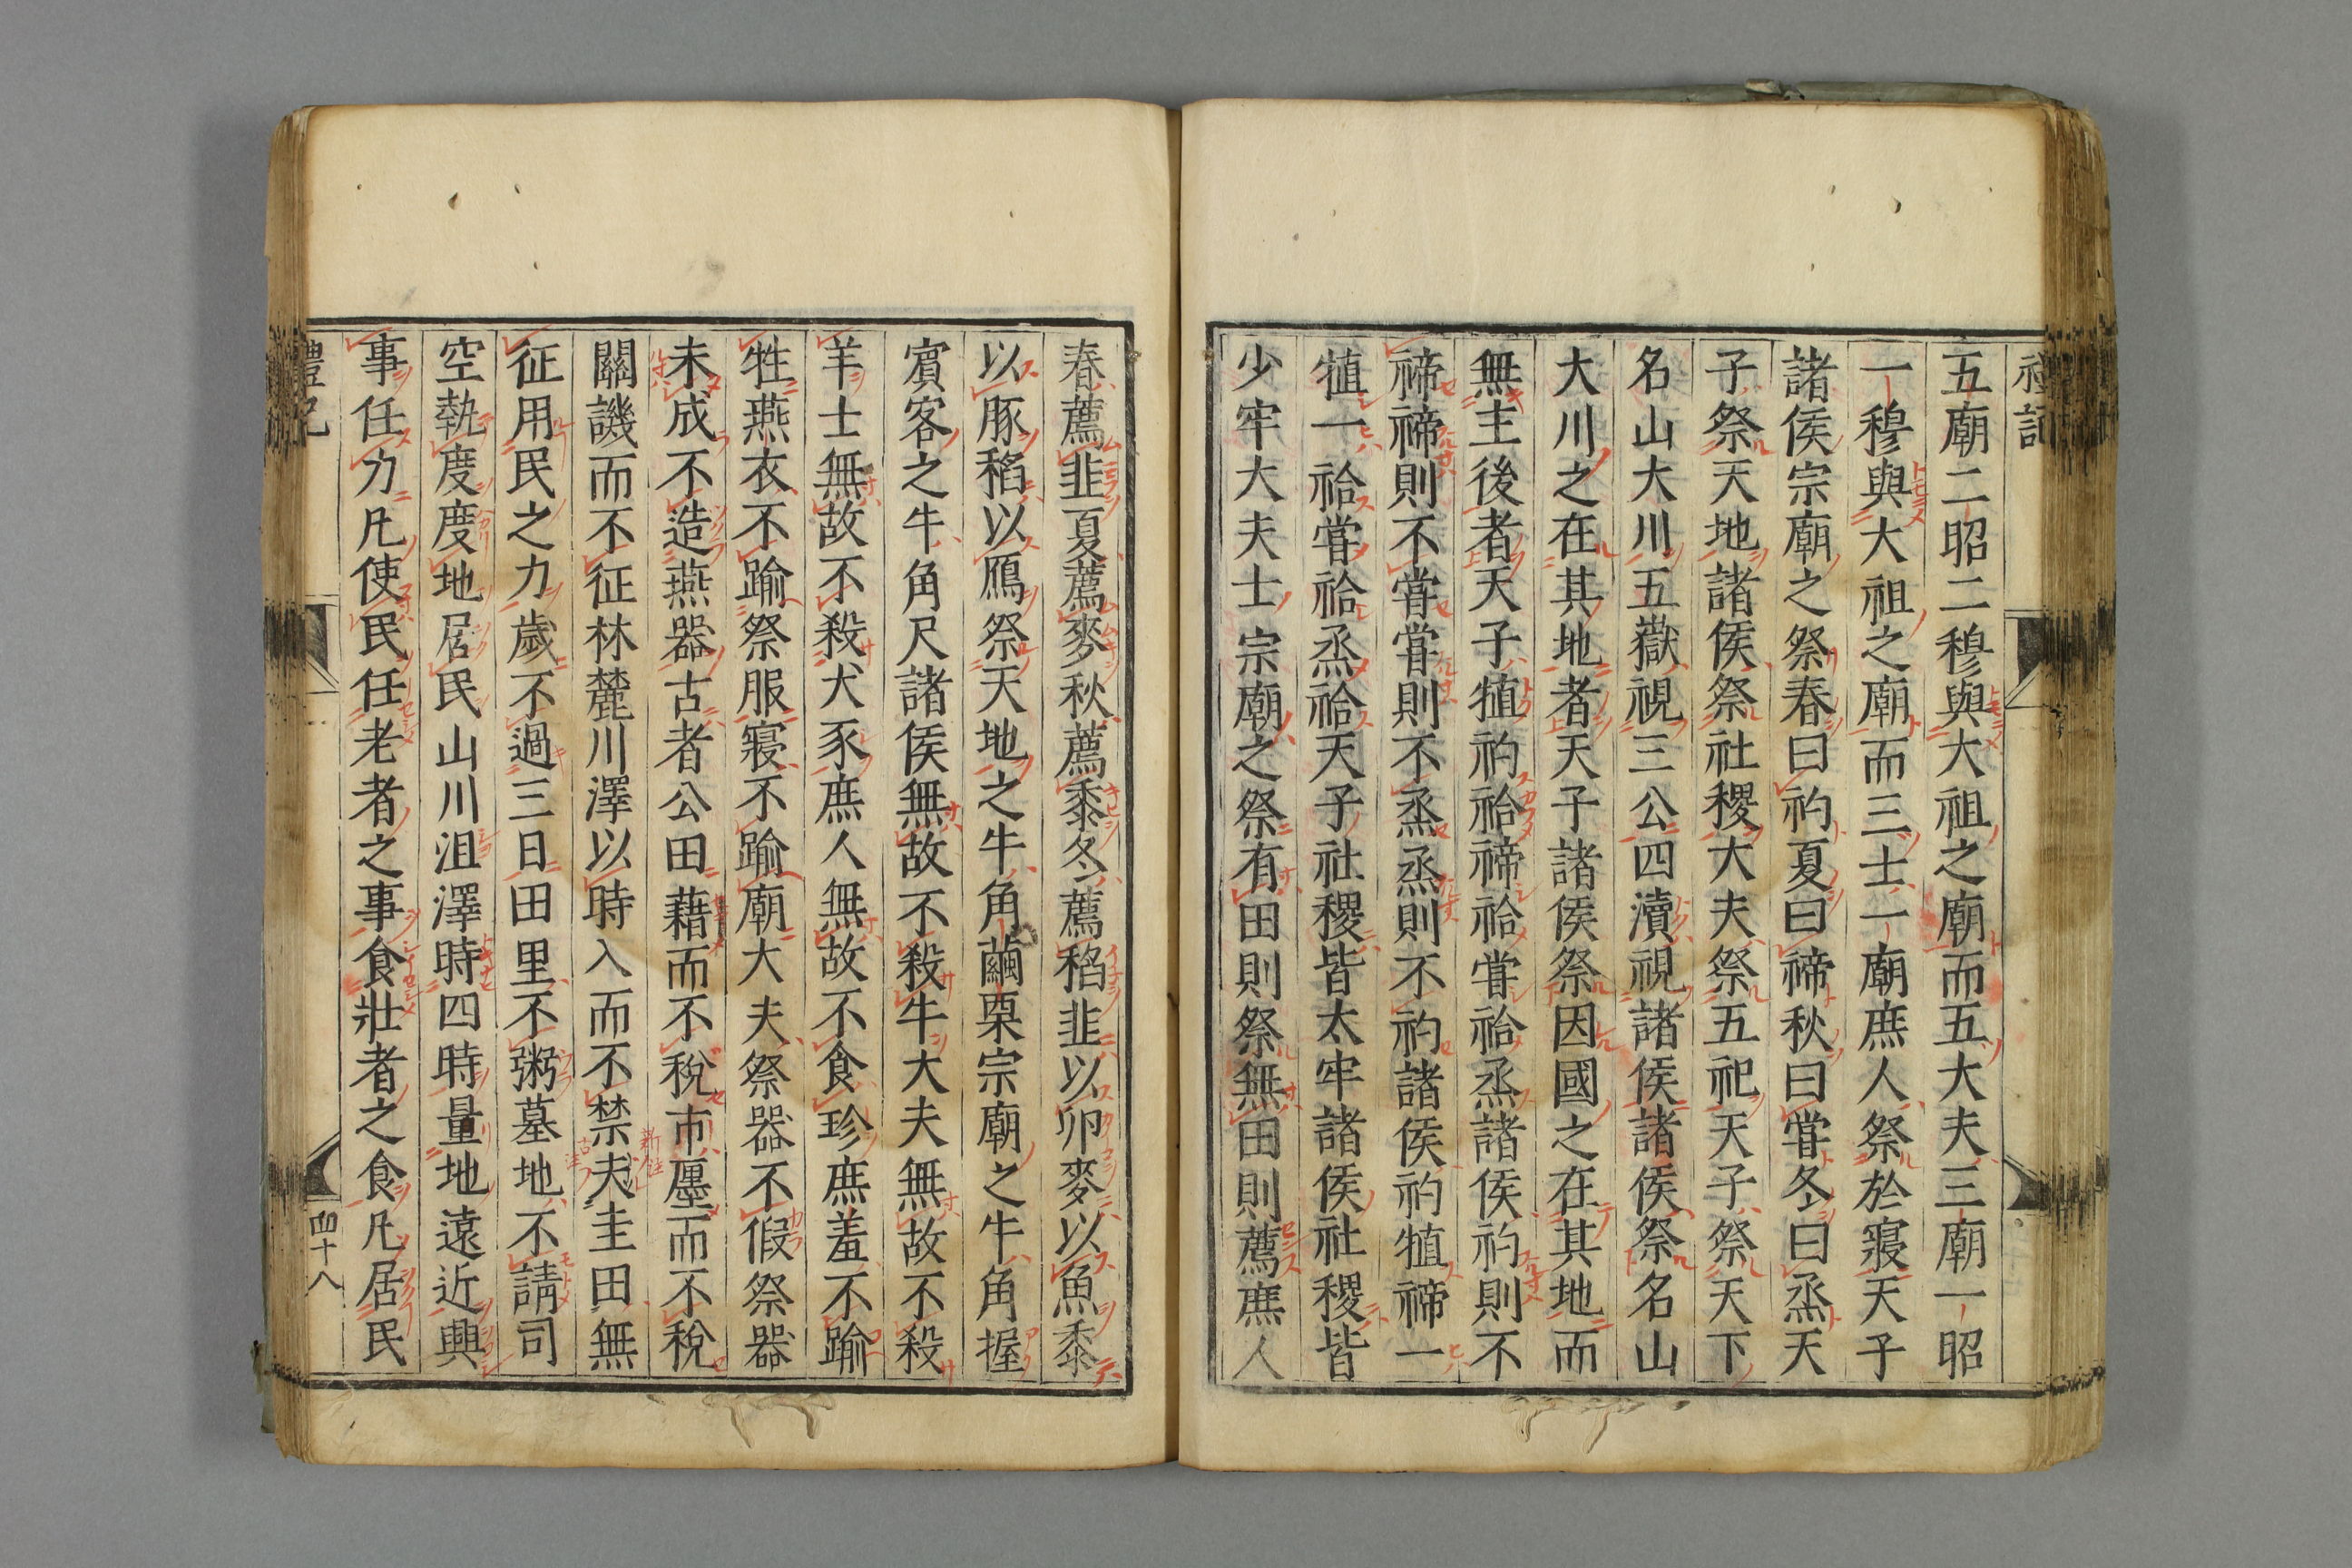 禮記
五廟二昭二穆與大祖之廟而五大夫三廟一昭
一穆與大祖之廟而三士一廟庶人祭於寢天子
諸侯宗廟之祭春曰礿夏曰禘秋曰嘗冬曰烝天
子祭天地諸侯祭社稷大夫祭五祀天子祭天下
名山大川五嶽視三公四瀆視諸侯諸侯祭名山
大川之在其地者天子諸侯祭因國之在其地而
無主後者天子犆礿祫禘祫嘗祫烝諸侯礿則不
禘禘則不嘗嘗則不烝烝則不礿諸侯礿犆禘一
犆一祫嘗祫烝祫天子社稷皆太牢諸侯社稷皆
少牢大夫士宗廟之祭有田則祭無田則薦庶人
春薦韭夏薦麥秋薦黍冬薦稻韭以卵麥以魚黍
以豚稻以鴈祭天地之牛角繭栗宗廟之牛角握
賓客之牛角尺諸侯無故不殺牛大夫無故不殺
羊士無故不殺犬豕庶人無故不食珍庶羞不踰
牲燕衣不踰祭服寢不踰廟大夫祭器不假祭器
未成不造燕器古者公田藉而不稅市廛而不稅
關譏而不征林麓川澤以時入而不禁夫圭田無
征用民之力歲不過三日田里不粥墓地不請司
空執度度地居民山川沮澤時四時量地遠近興
事任力凡使民任老者之事食壯者之食凡居民
禮記
四十八